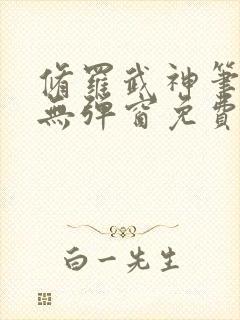 脩羅武神筆
無彈窗免費
白一先生